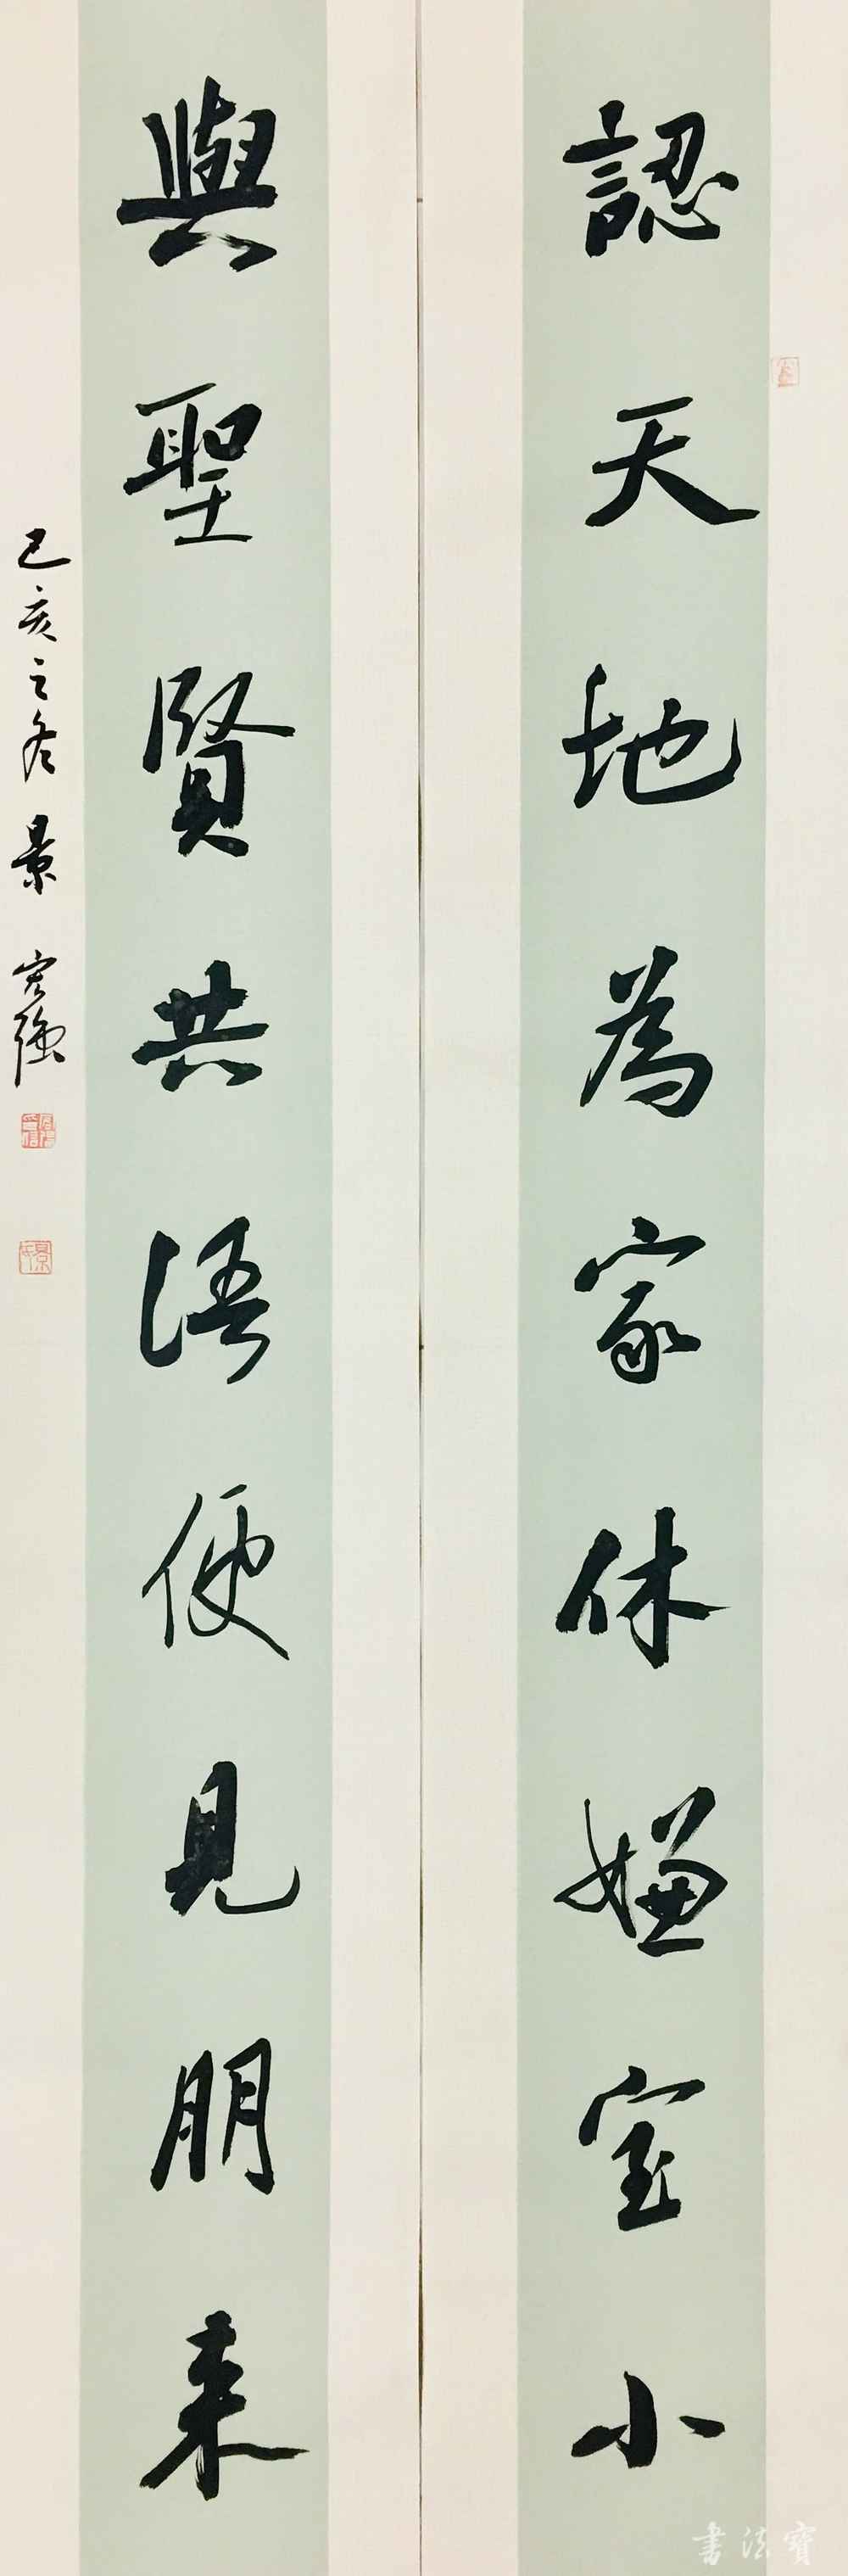 認天地為家休嫌室小
與聖賢共語便見朋来
己亥之冬 景宏強
書法寶